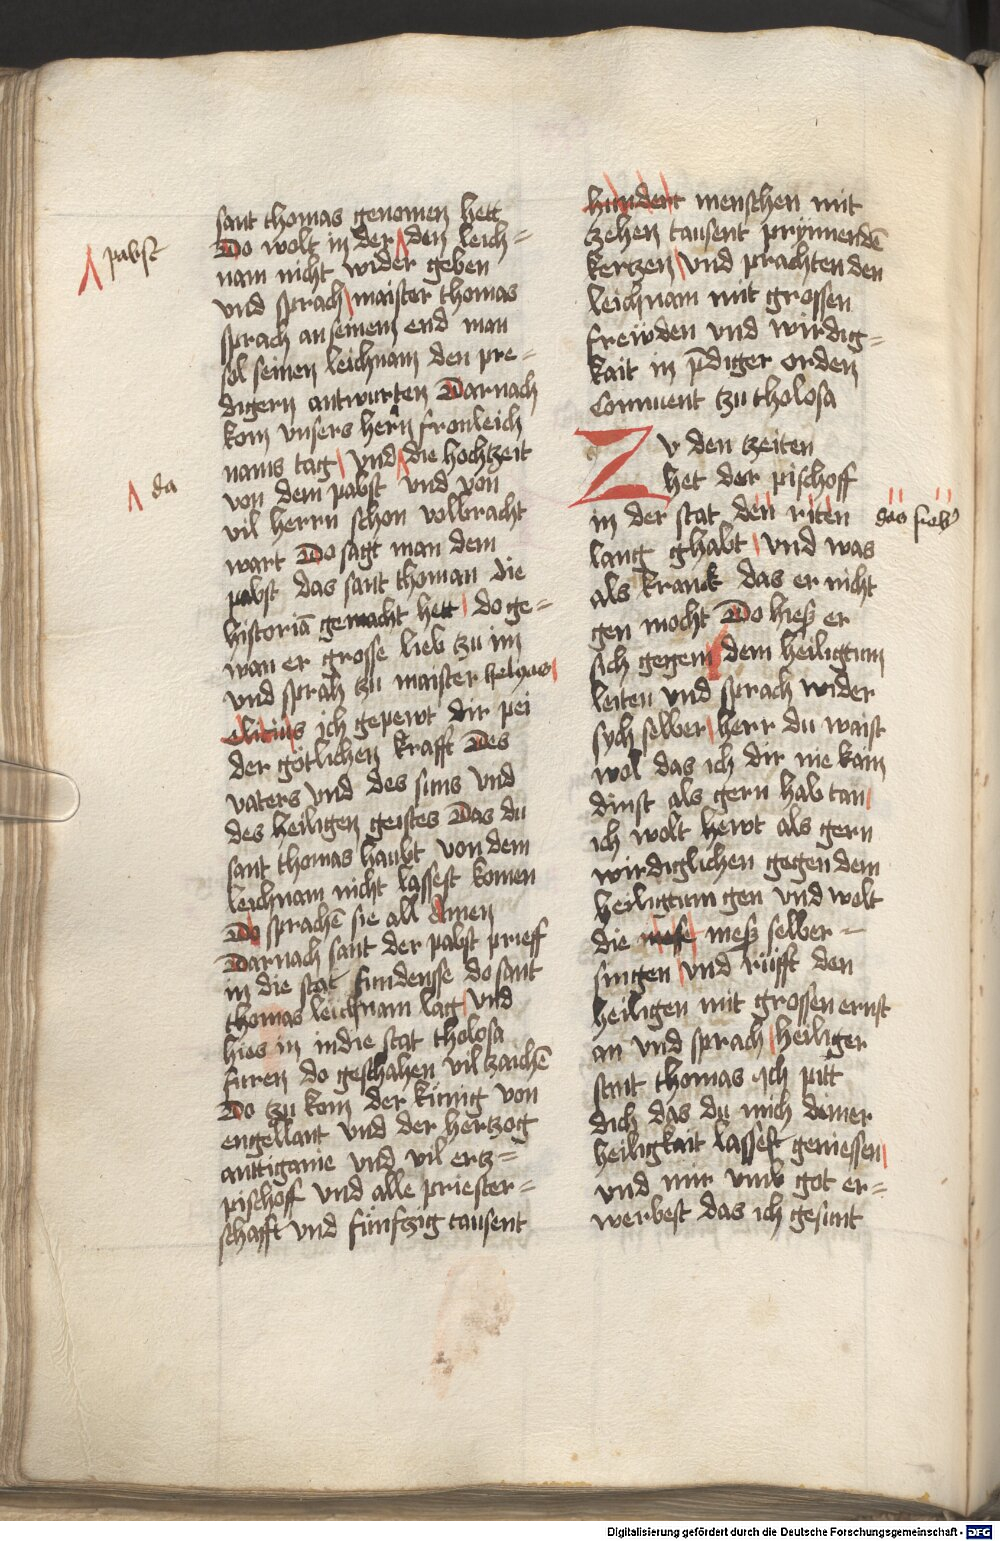 sant thomas genomen hett
Do wolt in der den leich=
pabst
nam nicht wider geben
vnd sprach maister thomas
sprach an seinem end man
sol seinen leichnam den pre=
digern antwurten Darnach
kom vnsers hern fronleich
nams tag vnd die hochtzeit
da
von dem pabst vnd von
vil herrn schon volbracht
wart Do sagt man dem
pabst das sant thoman die
historiā gemacht hett do ge=
wan er grosse lieb tzu im
vnd sprach tzu maister helyas
elicius ich gepewt dir pei
der götlichen krafft Des
vaters vnd des suns vnd
des heiligen geistes Das du
sant thomas haubt von dem
leichnam nicht lassest komen
Do sprachē sie all Amen
Darnach sant der pabst prieff
in die stat fundensse do sant
thomas leichnam lag vnd
hies in in die stat tholosa
furen do geschahen vil zaichē
Do tzu kom der künig von
engellant vnd der hertzog
anttiganie vnd vil ertz=
pischoff vnd alle priester=
schafft vnd fünftzig tausent
hundert menschen mit
tzehen tausent prynnendē
kertzen vnd prachten den
leichnam mit grossen
frewden vnd wirdig=
kait in p̄diger orden
Conuent tzu tholosa
Zv den tzeiten
het der pischoff
in der stat den riten
das fieb
lang ghabt vnd was
als kranck das er nicht
gen mocht Do hiesz er
sich gegem dem heiligtum
leiten vnd sprach wider
sych selber herr du waist
wol das ich dir nie kain
dinst als gern hab tan
ich wolt hewt als gern
wirdiglichen gegen dem
heiligtum gen vnd wolt
die mese mesz selber =
singen vnd rüfft den
heiligen mit grossen ernst
an vnd sprach heiliger
sant thomas Ich pitt
dich das du mich deiner
heiligkait lassest geniessen
vnd mir vmb got er=
werbest das ich gesunt
Digitalisierung gefördert durch die Deutsche Forschungsgemeinschaft - DFG